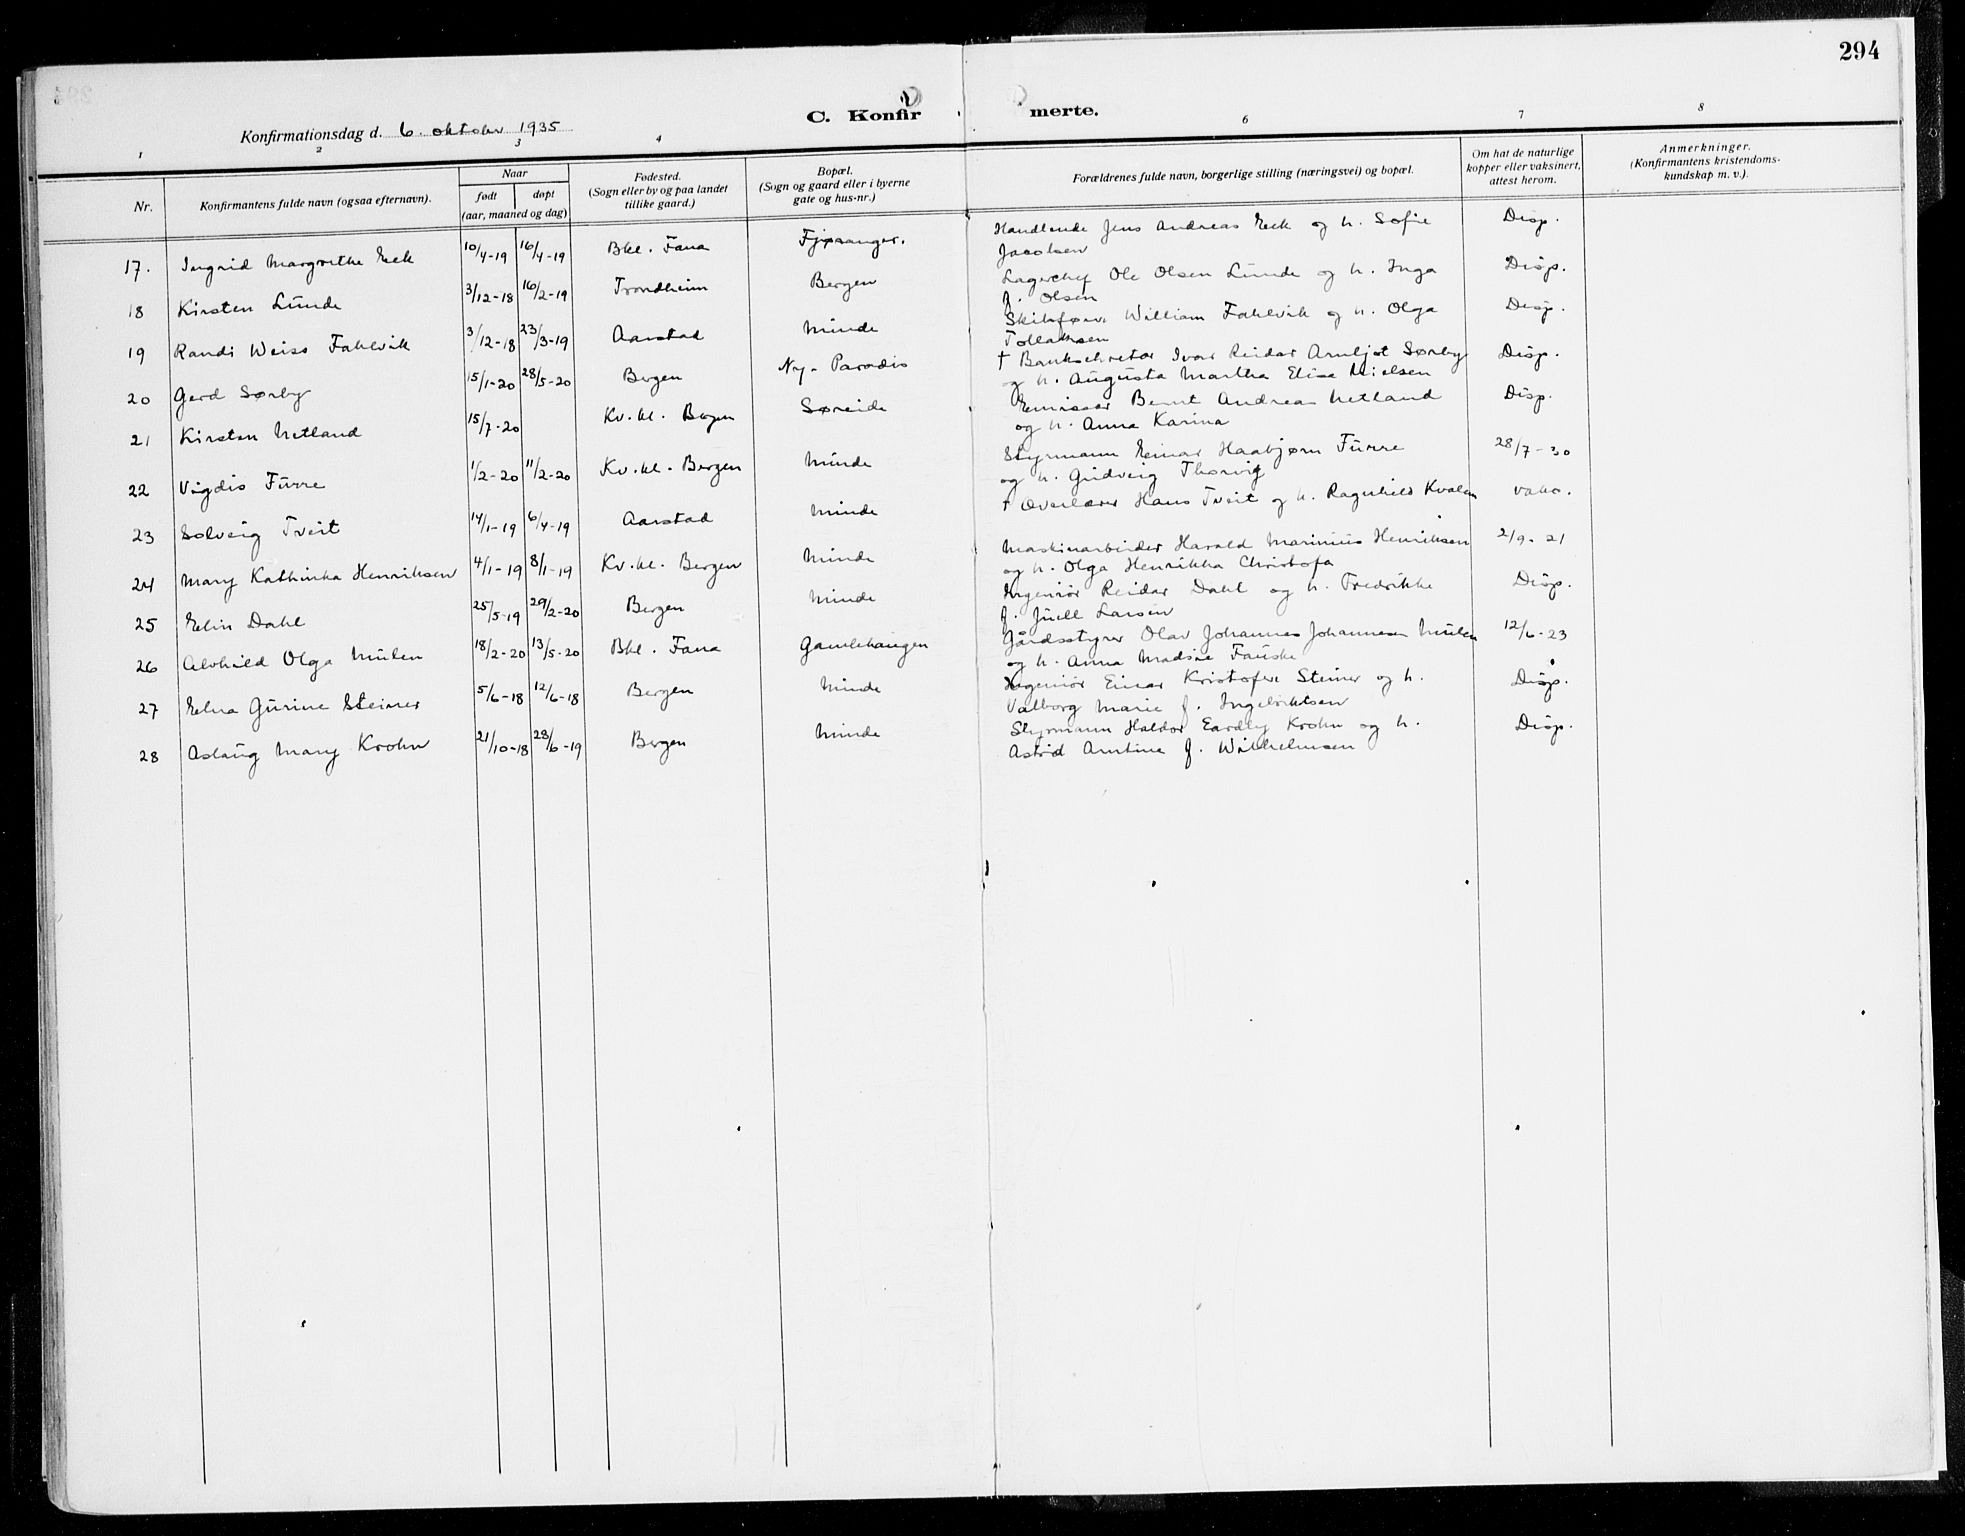 294
C. Konfirmerte.
Konfirmationsdag d. 6. oktober 1935
1 2 3 4 6 7 8
Nr.
Konfirmantens fulde navn (ogsaa efternavn).
Naar
født døpt
(aar, maaned og dag)
Fødested.
(Sogn eller by og paa landet
tillike gaard.)
Bopæl.
(Sogn og gaard eller i byerne
gate og hus-nr.)
Forældrenes fulde navn, borgerlige stilling (næringsvei) og bopæl.
Om hat de naturlige
kopper eller vaksinert,
attest herom.
Anmerkninger.
(Konfirmantens kristendoms-
kundskap m. v.).
17. Ingrid Margrethe Eek 10/4-19 16/4-19 Bkl. Fana Fjøsanger. Handlende Jens Andreas Eek og h. Sofie Disp.
Jacobsen
18 Kirsten Lunde 3/12-18 16/2-19 Trondheim Bergen Lagerchef Ole Olsen Lunde og h. Inga Disp.
f. Olsen
19 Randi Weiss Fahlvik 3/12-18 23/3-19 Aarstad Minde William Fahlvik og h. Olga Disp.
Tollaksen
20 Gerd Sørby 15/1-20 28/5-20 Bergen Ny-Paradis † Banksekretær Ivar Reidar Arnljot Sørby Disp.
og h. Augusta Martha Elisa Nielsen
21 Kirsten Netland 15/7-20 Kv.kl. Bergen Søreide Emissær Bernt Andreas Netland Disp.
og h. Anna Karina
22 Vigdis Furre 1/2-20 11/2-20 Kv.kl. Bergen Minde Styrmann Einar Haabjørn Furre 28/7-30
og h. Gudveig Thorvig
23 Solveig Tveit 14/1-19 6/4-19 Aarstad Minde † Overlærer Hans Tveit og h. Ragnhild Kvalen vaks.
24 Mary Kathinka Henriksen 4/1-19 8/1-19 Kv.kl. Bergen Minde Maskinarbeider Harald Marinius Henriksen 2/9-21
og h. Olga Henrikka Christofa
25 Elin Dahl 25/5-19 29/2-20 Bergen Minde Ingeniør Reidar Dahl og h. Fredrikke Disp.
f. Juell Larsen
26 Alvhild Olga Mulen 18/2-20 13/5-20 Bkl. Fana Gamlehaugen Gårdsstyrer Olav Johannes Johannesen Mulen 12/6-23
og h. Anna Madsine Fauske
27 Edna Gurine Steiner 5/6-18 12/6-18 Bergen Minde Ingeniør Einar Kristofer Steiner og h. Disp.
Valborg Marie f. Ingebriktsen
28 Aslaug Mary Krohn 21/10-18 28/6-19 Bergen Minde Styrmann Haldor Eardley Krohn og h. Disp.
Astrid Arntine f. Wilhelmsen